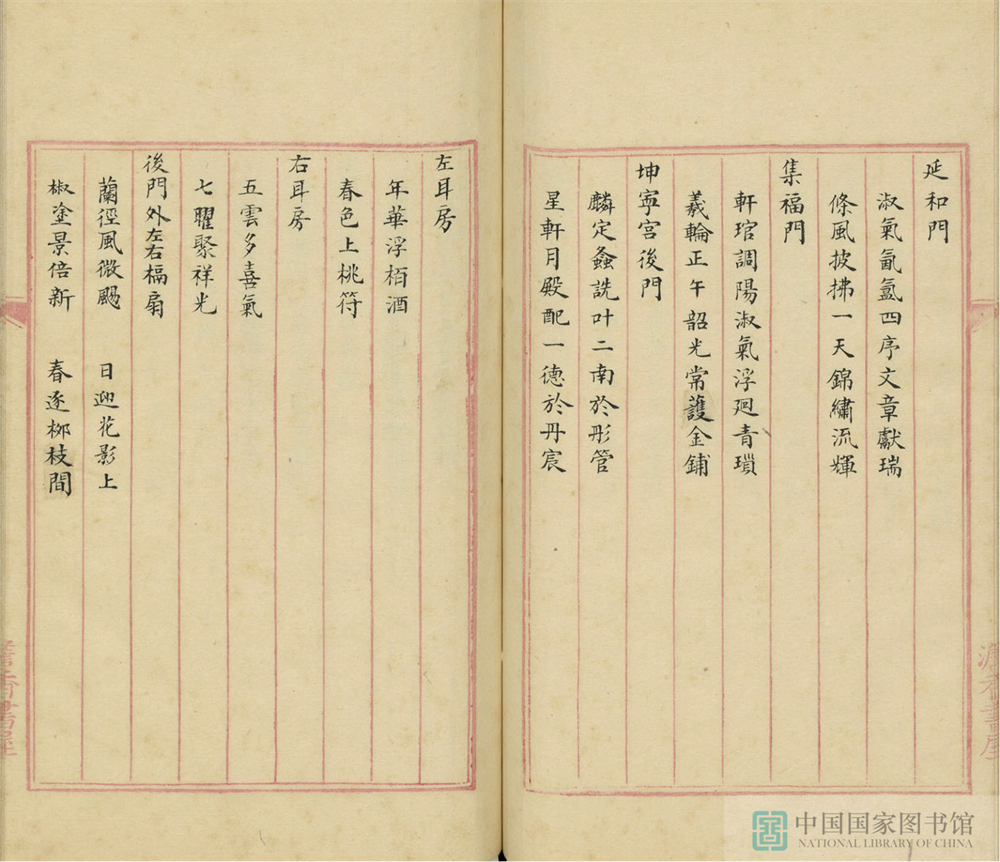 延和門
淑氣氤氳四序文章獻瑞
條風披拂一天錦繡流輝
集福門
軒琯調陽淑氣浮廻青瑣
羲輪正午韶光常護金鋪
坤寧宮後門
麟定螽詵叶二南於彤管
星軒月殿配一德於丹宸
左耳房
年華浮栢酒
春色上桃符
右耳房
五雲多喜氣
七曜聚祥光
後門外左右槅扇
蘭徑風微颺 日迎花影上
椒塗景倍新 春逐柳枝間
中国国家图书馆
NATIONAL LIBRARY OF CHINA